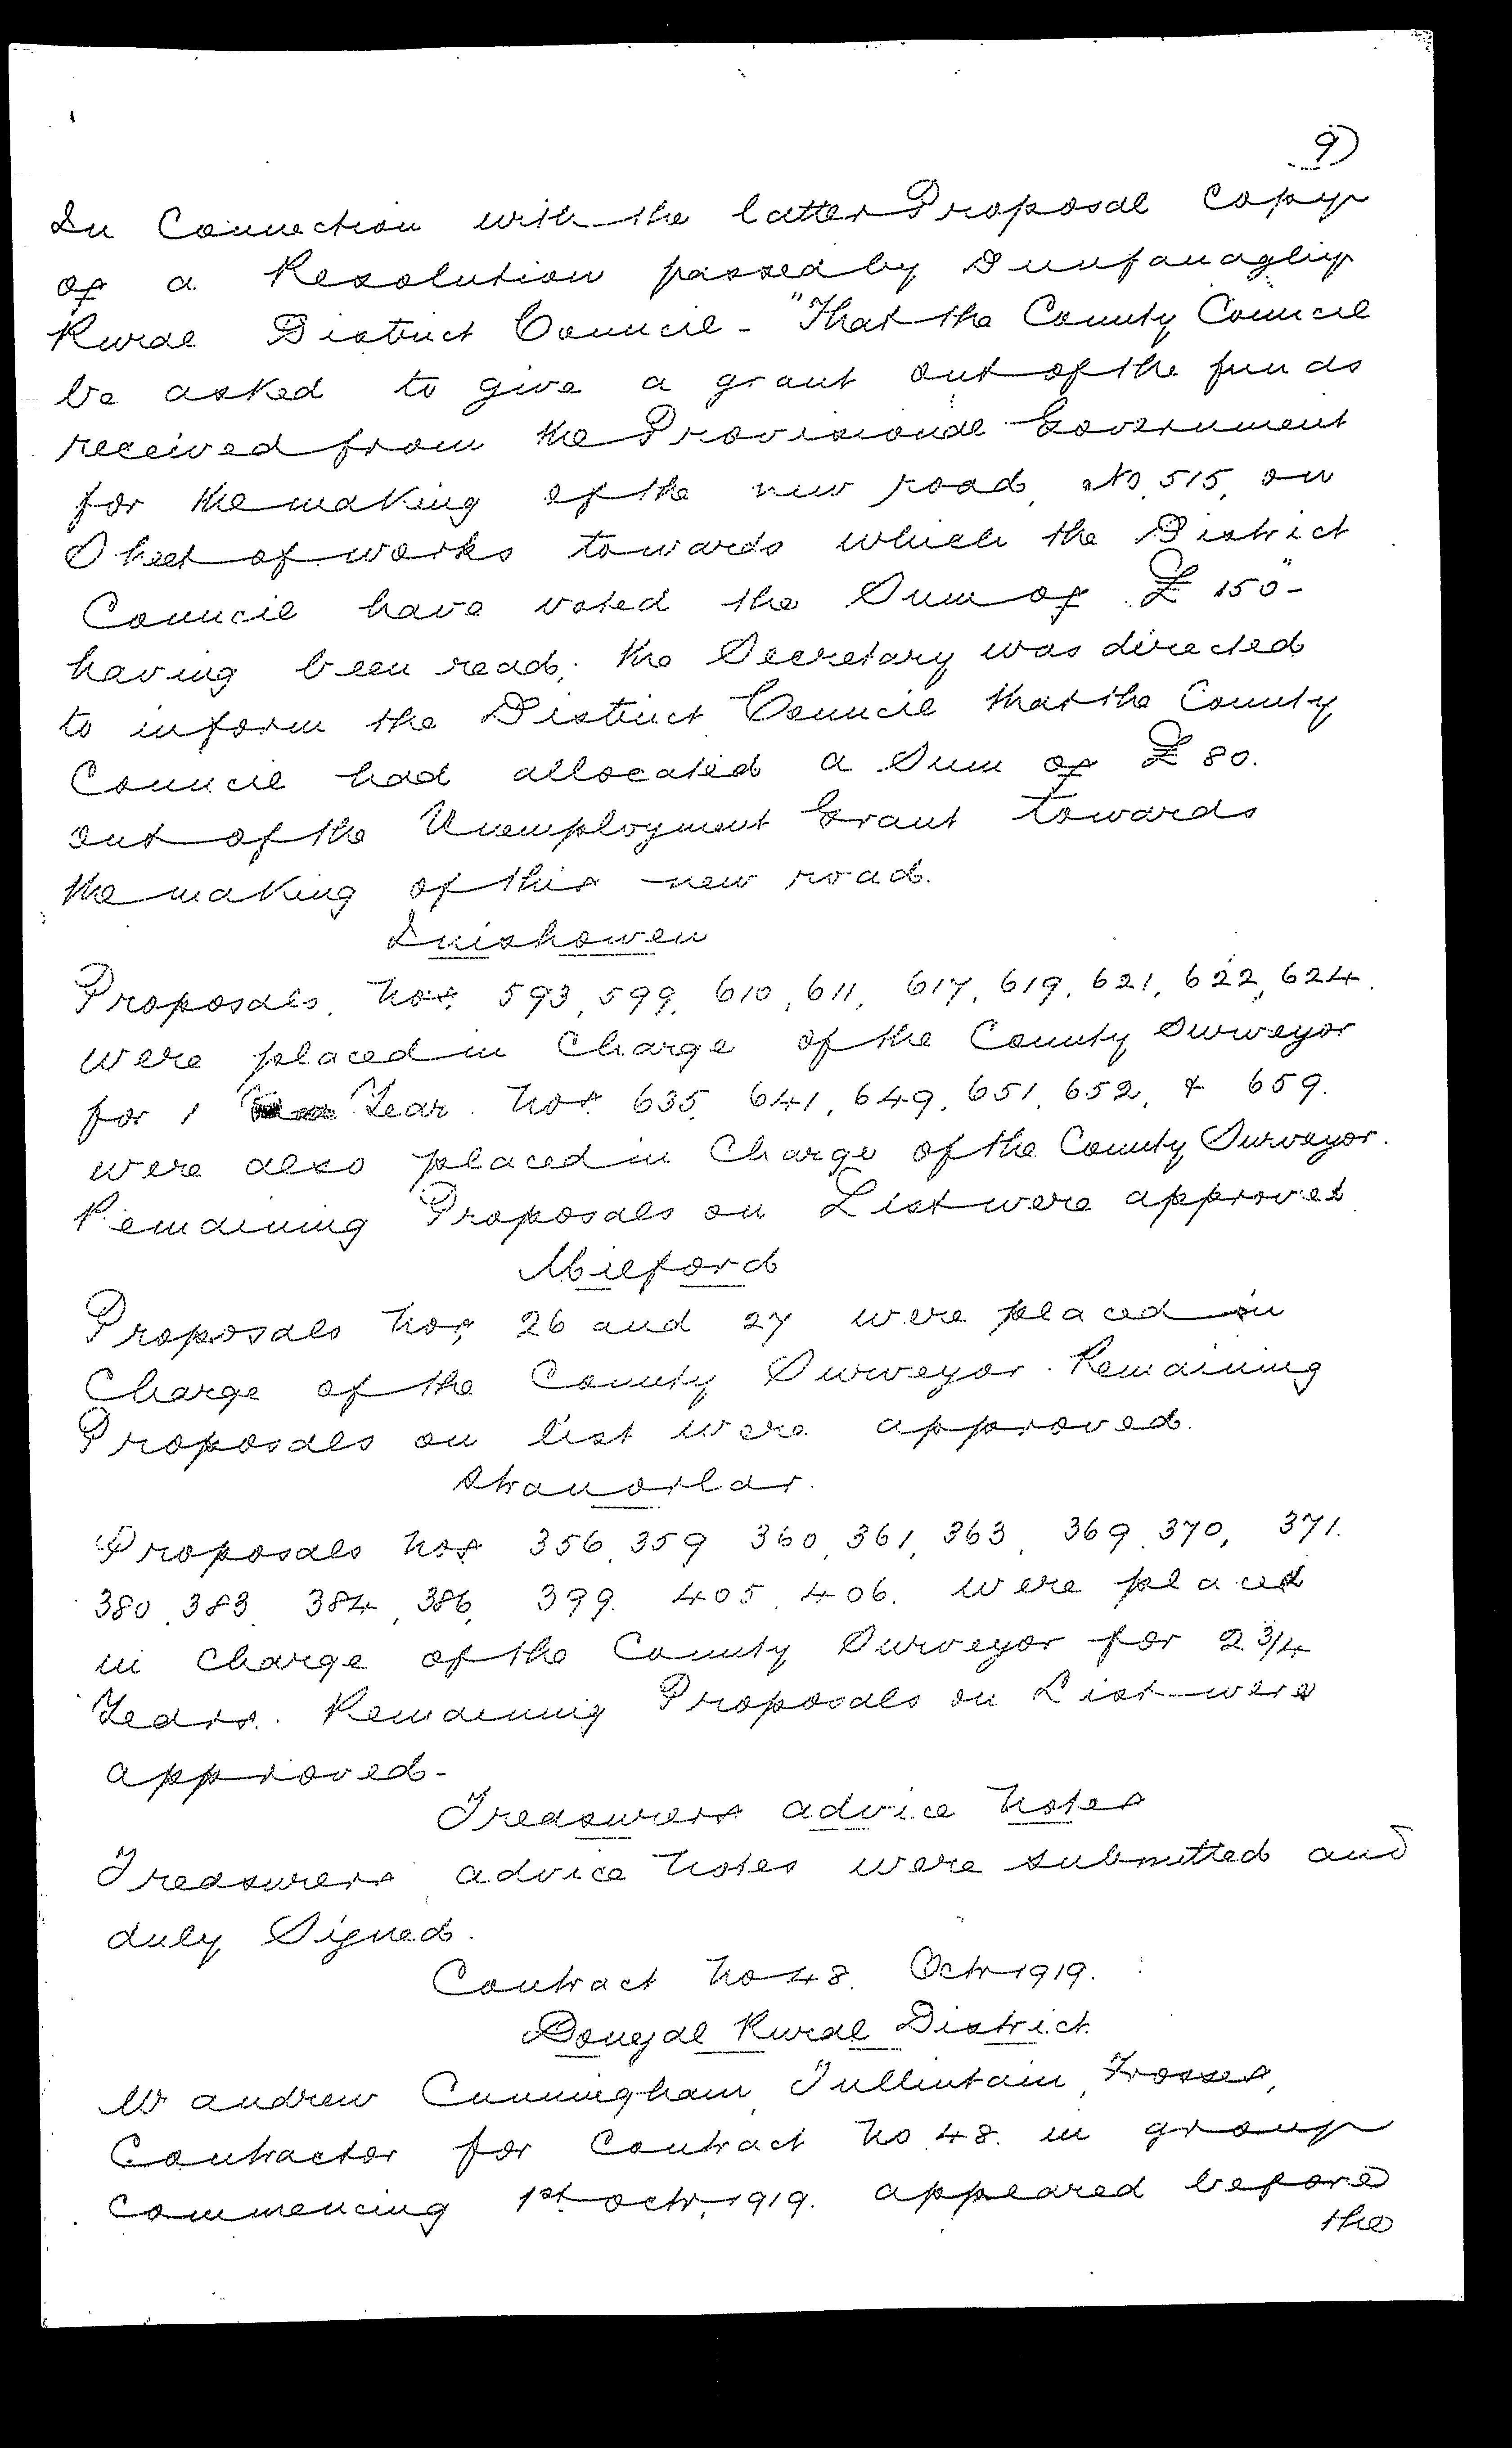 9)
In Connection with the latter Proposal copy
of a Resolution passed by Dunfanaghy
Rural District Council - "That the County Council
be asked to give a grant out of the funds
received from the Provisional Government
for the making of the new road, No. 515, on
Sheet of works towards which the District
Council have voted the Sum of £150" -
having been read; the Secretary was directed
to inform the District Council that the County
Council had allocated a Sum of £80.
out of the Unemployment Grant towards
the making of this new road.
Inishowen
Proposals, Nos. 593, 599, 610, 611, 617, 619, 621, 622, 624.
were placed in Charge of the County Surveyor
for 1 Year. Nos. 635, 641, 649, 651, 652, & 659.
were also placed in Charge of the County Surveyor.
Remaining Proposals on List were approved
Milford
Proposals Nos, 26 and 27 were placed in
Charge of the County Surveyor. Remaining
Proposals on list were approved.
Stranorlar.
Proposals Nos 356, 359 360, 361, 363, 369, 370, 371.
380, 383, 384, 386, 399. 405, 406. were placed
in charge of the County Surveyor for 2 3/4
Years. Remaining Proposals on List were
approved -
Treasurers advice Notes
Treasurers advice Notes were submitted and
duly Signed.
Contract No 48. Octr 1919.
Donegal Rural District
Mr andrew Cunningham, Tullintain, Frosses,
Contractor for Contract No. 48. in group
commencing 1st octr, 1919. appeared before
the